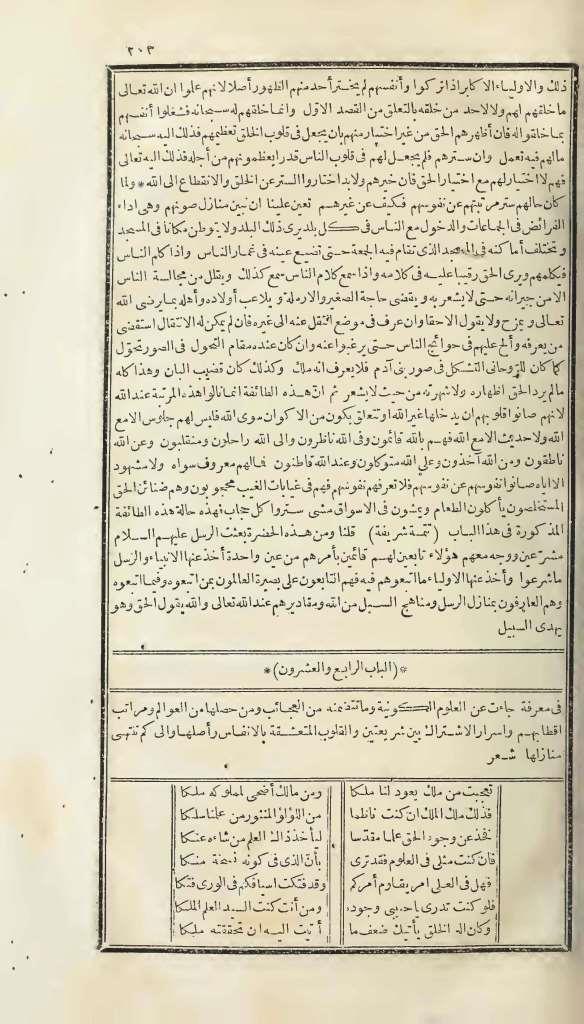 ٢٠٣
ذلك والاولياء الاكابر اذا تركوا وأنفسهم لم يختر أحد منهم الظهور أصلا لانهم علموا ان الله تعالى
ما خلقهم لهم ولا لاحد من خلقه بالتعلق من القصد الاوّل وانما خلقهم له سبحانه فشغلوا أنفسهم
بما خلقوا له فان أظهرهم الحق من غير اختيار منهم بان يجعل فى قلوب الخلق تعظيمهم فذلك اليه سبحانه
ما لهم فيه تعمل وان سترهم فلم يجعل لهم فى قلوب الناس قدرا يعظمونهم من أجله فذلك اليه تعالى
فهم لا اختيار لهم مع اختيار الحق فان خيرهم ولا بد اختاروا الستر عن الخلق والانقطاع الى الله * ولما
كان حالهم ستر مرتبتهم عن نفوسهم فكيف عن غيرهم تعين علينا ان نبين منازل صونهم وهى اداء
الفرائض فى الجماعات والدخول مع الناس فى كل بلد بزى ذلك البلد ولا يوطن مكانا فى المسجد
وتختلف أماكنه فى المسجد الذى تقام فيه الجمعة حتى تضيع عينه فى غمار الناس واذا كلم الناس
فيكلمهم ويرى الحق رقيبا عليه فى كلامه واذا سمع كلام الناس سمع كذلك ويقلل من مجالسة الناس
الا من جيرانه حتى لا يشعر به ويقضى حاجة الصغير والارملة ويلاعب أولاده وأهله بما يرضى الله
تعالى ويمزح ولا يقول الا حقا وان عرف فى موضع انتقل عنه الى غيره فان لم يمكن له الانتقال استقضى
من يعرفه وألح عليهم فى حوائج الناس حتى يرغبوا عنه وان كان عنده مقام التحول فى الصور تحوّل
كما كان للروحانى التشكل فى صور بنى آدم فلا يعرف انه ملك وكذلك كان قضيب البان وهذا كله
ما لم يرد الحق اظهاره ولا شهرته من حيث لا يشعر ثم ان هذه الطائفة انما نالوا هذه المرتبة عند الله
لانهم صانوا قلوبهم ان يدخلها غير الله أو تتعلق بكون من الاكوان سوى الله فليس لهم جلوس الا مع
الله ولا حديث الا مع الله فهم بالله قائمون وفى الله ناظرون والى الله راحلون ومنقلبون وعن الله
ناطقون ومن الله آخذون وعلى الله متوكلون وعند الله قاطنون فما لهم معروف سواه ولا مشهود
الا اياه صانوا نفوسهم عن نفوسهم فلا تعرفهم نفوسهم فهم فى غيابات الغيب محجوبون وهم ضنائن الحق
المستخلصون يأكلون الطعام ويمشون فى الاسواق مشى ستر وأكل حجاب فهذه حالة هذه الطائفة
المذكورة فى هذا الباب (تتمة شريفة) قلنا ومن هذه الحضرة بعثت الرسل عليهم السلام
مشرّعين ووجه معهم هؤلاء تابعين لهم قائمين بأمرهم من عين واحدة أخذ عنها الانبياء والرسل
ما شرعوا وأخذ عنها الاولياء ما اتبعوهم فيه فهم التابعون على بصيرة العالمون بمن اتبعوه وفيما اتبعوه
وهم العارفون بمنازل الرسل ومناهج السبيل من الله ومقاديرهم عند الله تعالى والله يقول الحق وهو
يهدى السبيل
* (الباب الرابع والعشرون) *
فى معرفة جاءت عن العلوم الكونية وما تتضمنه من العجائب ومن حصلها من العوالم ومراتب
اقطابهم واسرار الاشتراك بين شريعتين والقلوب المتعشقة بالانفاس وأصلها والى كم تنتهى
منازلها شعر
تعجبت من ملك يعود لنا ملكا ومن مالك أضحى لمملوكه ملكا
فذلك ملك الملك ان كنت ناظما من اللؤلؤ المنثور من علمنا سلكا
فخذ عن وجود الحق علما مقدسا ليأخذ ذاك العلم من شاءه عنكا
فان كنت مثلى فى العلوم فقد ترى بأن الذى فى كونه نسخة منكا
فهل فى العلى امر يقاوم أمركم وقد فتكت اسيافكم فى الورى فتكا
فلو كنت تدرى يا حبيبى وجوده ومن أنت كنت السيد العلم الملكا
وكان اله الخلق يأتيك ضعف ما أتيت اليه ان تحققته ملكا